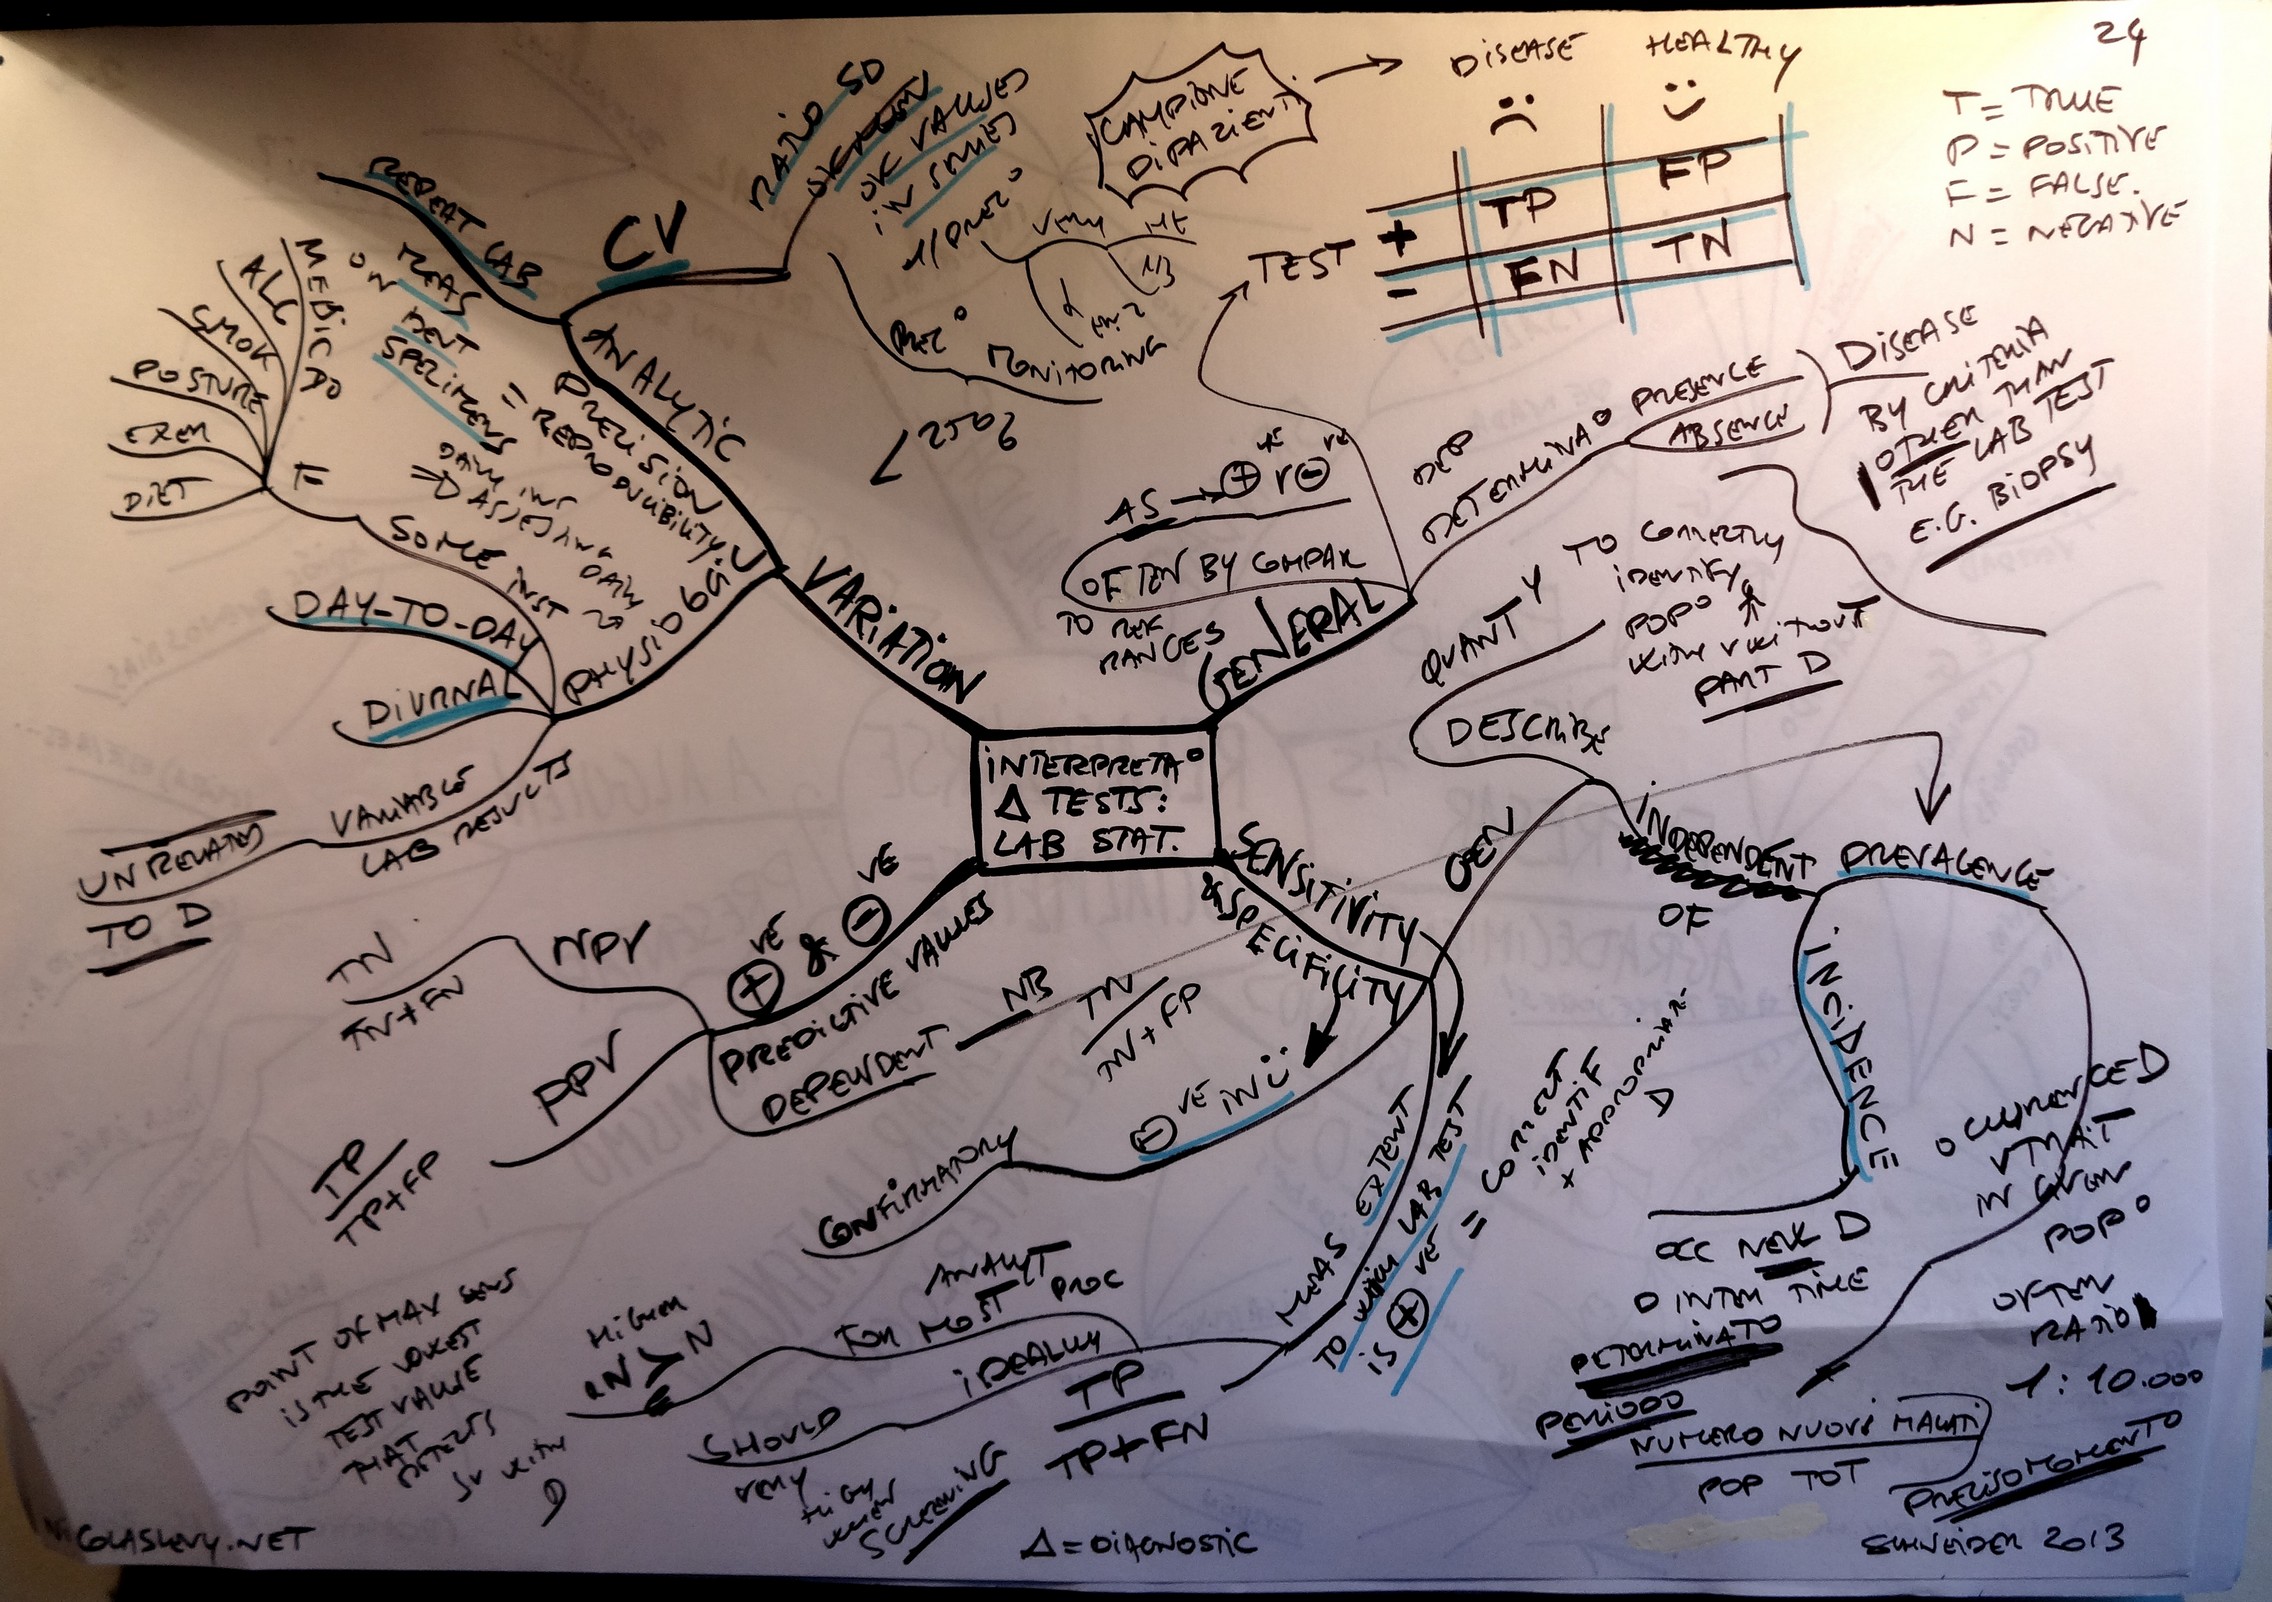 24
T = TRUE
P = POSITIVE
F = FALSE.
N = NEGATIVE
DISEASE HEALTHY
CAMPIONE
DI PAZIENTI
TEST
+ TP FP
- FN TN
INTERPRETA°
Δ TESTS:
LAB STAT.
GENERAL
OFTEN BY COMPAR
TO REF
RANGES
AS → ⊕ve r ⊖ve
DEP
DETERMINA° PRESENCE
ABSENCE
DISEASE
BY CRITERIA
OTHER THAN
THE LAB TEST
E.G. BIOPSY
VARIATION
ANALYTIC
PRECISION
= REPRODUCIBILITY
CV
RATIO SD
OK VALUES
IN SERIES
REPEAT LAB
MEAS
ON
SPECIMENS
MONITORING
PHYSIOLOGIC
SOME INST
F
MEDIC
ALC
SMOK
POSTURE
EXER
DIET
DAY-TO-DAY
DIURNAL
VARIABLE
LAB RESULTS
UNRELATED
TO D
SENSITIVITY
& SPECIFICITY
GEN
DESCRIBE
QUANTY
TO CORRECTLY
IDENTIFY
POP°
WITH V WITHOUT
PART D
INDEPENDENT
OF
PREVALENCE
INCIDENCE
OCC NEW D
TIME
DETERMINATO
PERIODO
NUMERO NUOVI MALATI
POP TOT
OCCURRENCE D
V TRAIT
IN GIVEN
POP°
OFTEN
RATIO
1:10.000
PRECISO MOMENTO
TN
TN+FP
⊖VE IN
CONFIRMATORY
MEAS EXTENT
TO WHICH LAB TEST
IS ⊕VE
= CORRECT
IDENTIF
D
TP
TP+FN
IDEALLY
SHOULD
VERY
HIGH
WHEN
SCREENING
FOR MOST
ANALYT
PROC
HIGHER
POINT OF MAX SENS
IS THE LOWEST
TEST VALUE
THAT
DETECTS
WITH
D
⊕VE & ⊖VE
PREDICTIVE VALUES
DEPENDENT
NB
NPV
TN
TN+FN
PPV
TP
TP+FP
NICOLASLEVY.NET
Δ = DIAGNOSTIC
SCHNEIDER 2013